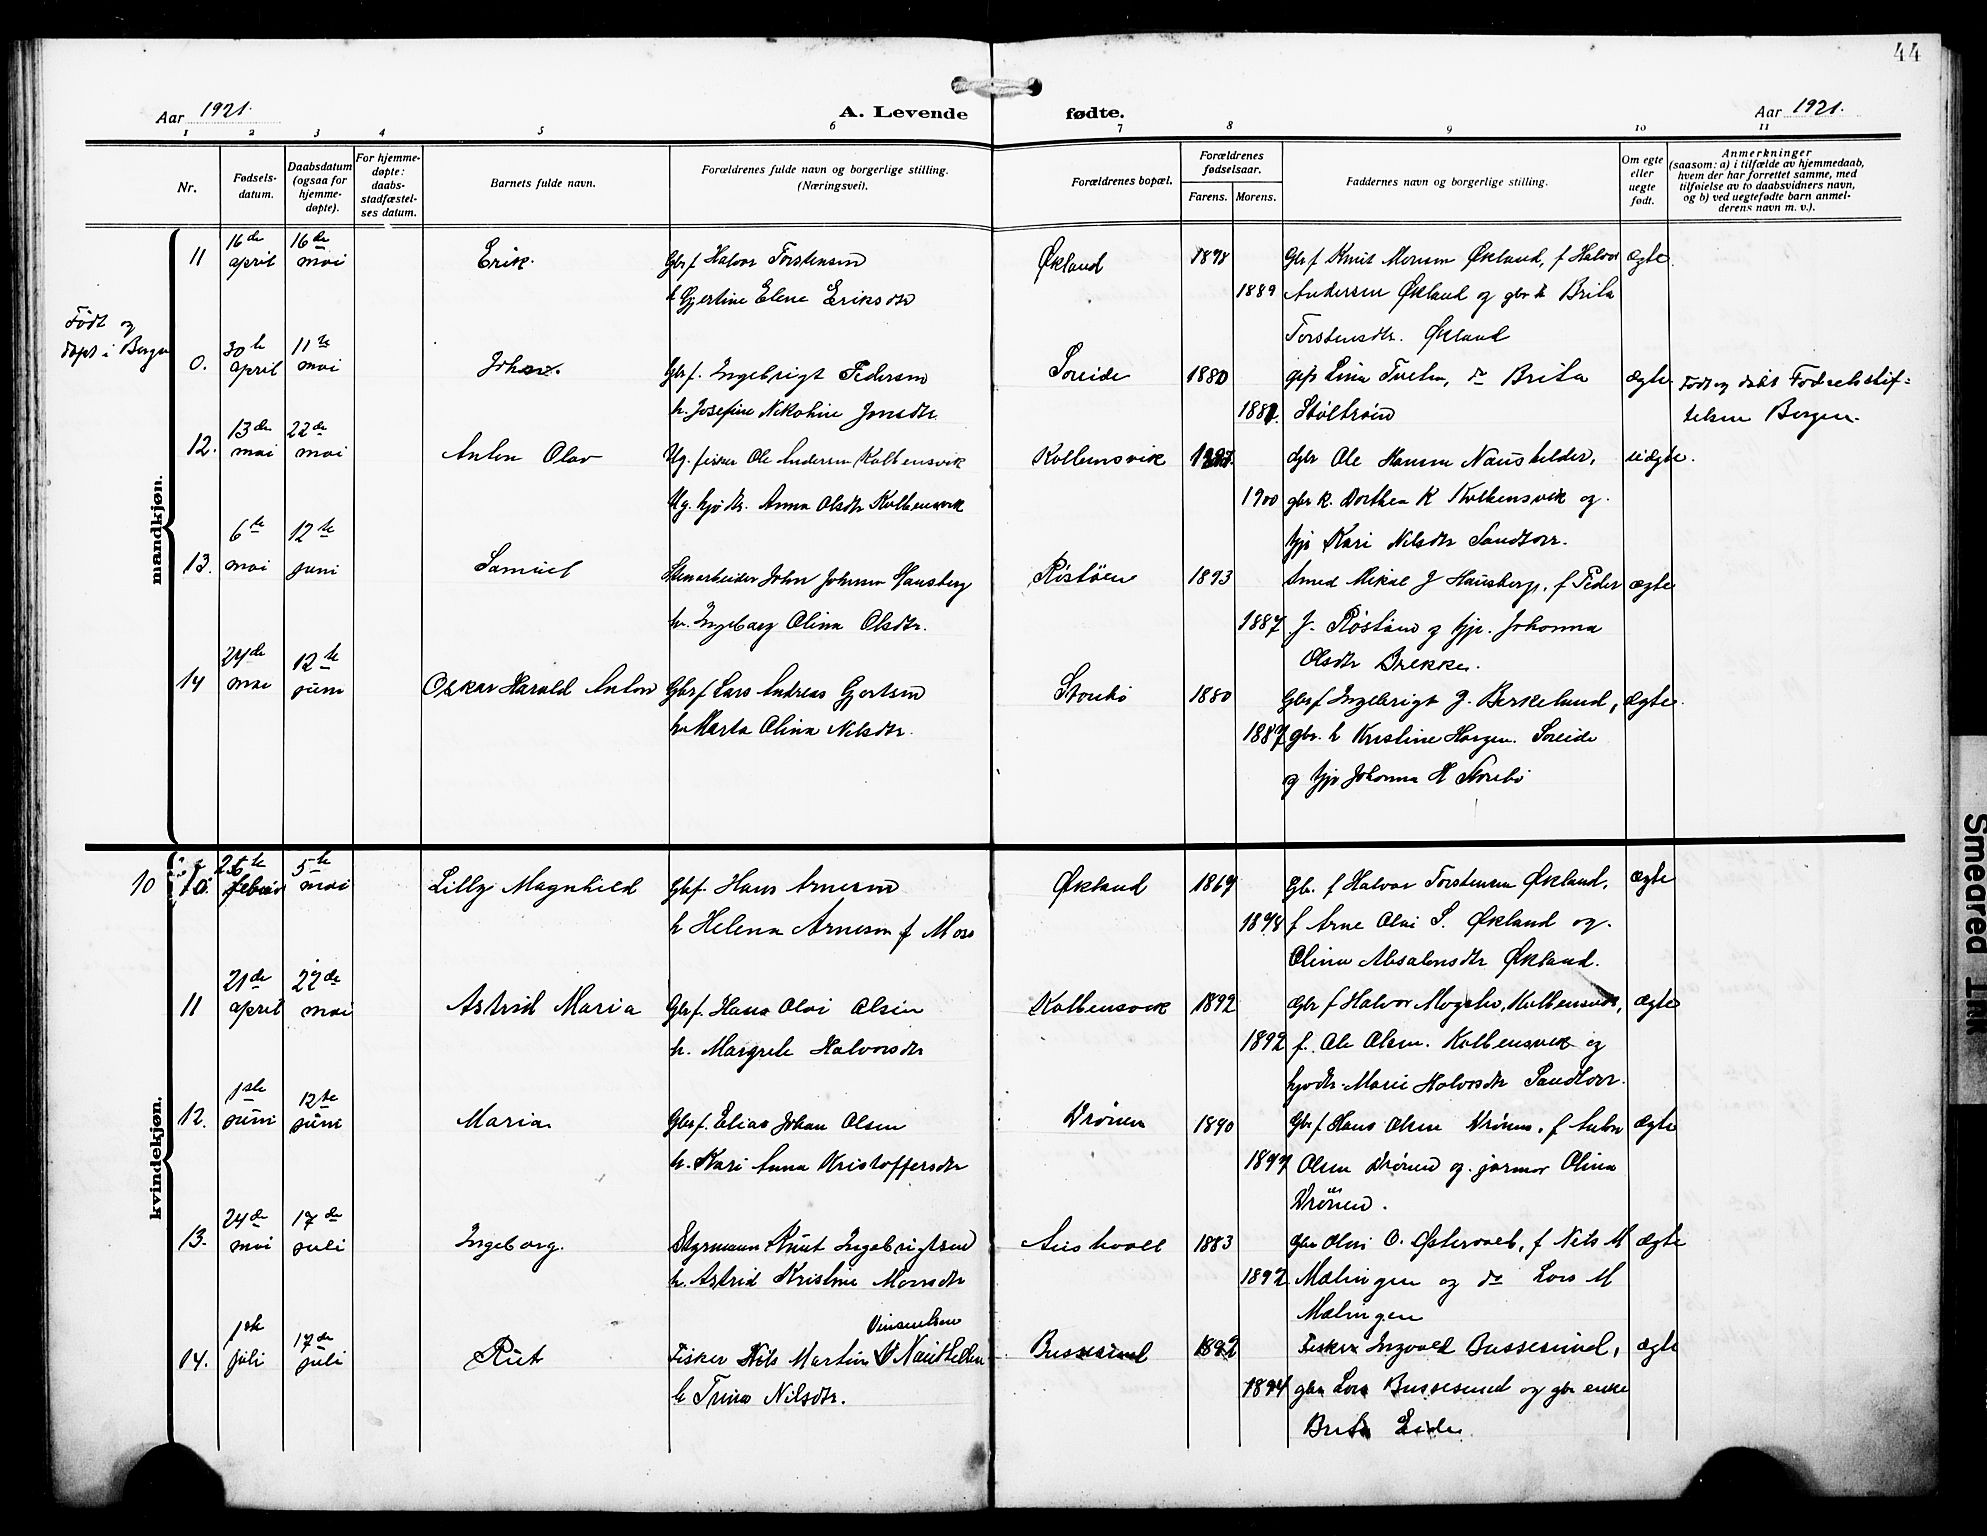 44
Aar 1921. A. Levende fødte. Aar 1921.
1 2 3 4 5 6 7 8 9 10 11
Nr.
Fødsels-
datum.
Daabsdatum
(ogsaa for
hjemme-
døpte).
For hjemme-
døpte:
daabs-
stadfæstel-
ses datum.
Barnets fulde navn.
Forældrenes fulde navn og borgerlige stilling.
(Næringsvei).
Forældrenes bopæl.
Forældrenes
fødselsaar.
Farens. Morens.
Faddernes navn og borgerlige stilling.
Om egte
eller
uegte
født.
Anmerkninger
(saasom: a) i tilfælde av hjemmedaab,
hvem der har forrettet samme, med
tilføielse av to daabsvidners navn,
og b) ved uegtefødte barn anmel-
derens navn m. v.).
mandkjøn.
16de 16de
11 april mai Erik. Gbr f Halvor Torstensen Økland Gbr f Knut Monsen Økland, f Halvor ægte
h Gjertine Elene Eriksdtr 1889 Andersen Økland og gbr k Brita
Torstensdtr. Økland
Født og
døpt i Bergen
30te 11te
0. april mai Johan. Gbr f. Ingebrigt Pedersen Søreide 1880 Lina, do Brita ægte Født og døbt Fødselsstif-
h. Josefine Nikoline Jonsdtr telsen Bergen.
13de 22de
12. mai mai Anton Olav Ug. fisker Ole Andersen Kolbensvik Kolbensvik Gbr Ole Hansen Nausthelder, uægte.
Ug. Anna Olsdtr Kolbensvik 1900 gbr k. Dorthea K Kolbensvik og
Kari Nilsdtr Sandtorr.
6te 12te
13. mai juni Samuel Stenarbeider John Johnsen Hausberg Røstøen 1893 Smed Mikal J Hausberg, f Peder ægte
h. Ingeborg Olina Olsdtr. 1887 J. Røstøen og Johanna
Olsdtr Brekke.
24de 12te
14 mai juni Oskar Harald Anton Gbr f Lars Andreas Gjertsen Storebø 1880 Gbr f Ingebrigt J. Berkeland, ægte.
h Marta Olina Nilsdtr. 1887 gbr. h Kristine Søreide
og Johanna H Storebø
kvindekjøn.
5te
10 10. februar mai Lilly Magnhild Gbf. Hans Arnesen Økland 1869 Gbr. f Halvor Torstensen Økland, ægte
h Helena Arnesen f Moss 1898 f Arne Olai S. Økland og
Olina Absalonsdtr Økland.
21de 22de
11 april mai Astrid Maria Gbr f. Hans Olai Olsen Kolbensvik 1892 Gbr f Halvor Mogstø, Kolbensvik, ægte
h. Margrete Halvorsdtr 1892 f. Ole Olsen. Kolbensvik og
Marie Halvorsdtr Sandtorr.
1ste 12te
12. juni juni Maria Gbr f. Elias Johan Olsen Drønen 1890 Gbr f Hans Olsen Drønen, f Anton ægte
h. Kari Anna Kristoffersdtr Olsen Drønen og jormor Olina
Drønen.
24de 17de
13. mai juli Ingeborg. Styrmann Knut Ingebrigtsen Austevoll 1883 Gbr Olai O. Østervoll, f Nils M ægte
h. Astrid Kristine Monsdtr 1892 Mælingen og do Lars M
Mælingen
1ste 17de Vinsentsen
14. juli juli Rut Fisker Nils Martin Bussesund 1892 Fisker Ingvald Bussesund, ægte
h Trina Nilsdtr. 1894 gbr Lars Bussesund og gbr enke
Brita Eide
Smeared Ink